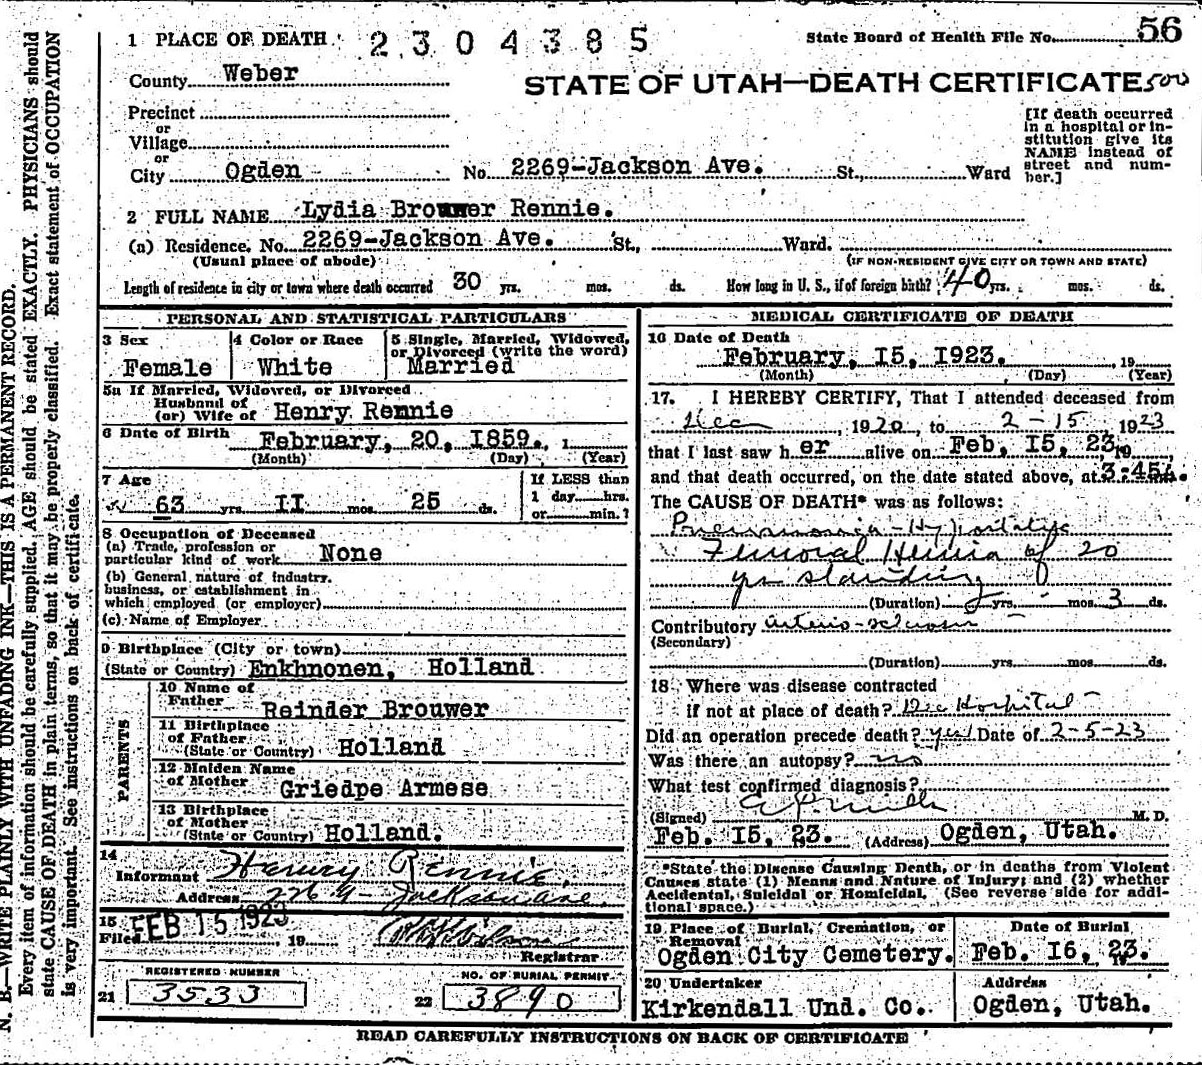 N. B.—WRITE PLAINLY WITH UNFADING INK—THIS IS A PERMANENT RECORD.
Every item of information should be carefully supplied. AGE should be stated EXACTLY. PHYSICIANS should
state CAUSE OF DEATH in plain terms, so that it may be properly classified. Exact statement of OCCUPATION
is very important. See instructions on back of certificate.
1 PLACE OF DEATH 2304385 State Board of Health File No. 56
County Weber
STATE OF UTAH—DEATH CERTIFICATE 500
Precinct
or
Village
or
City Ogden No. 2269-Jackson Ave. St., Ward
[If death occurred
in a hospital or in-
stitution give its
NAME instead of
street and num-
ber.]
2 FULL NAME Lydia Brouwer Rennie.
(a) Residence. No. 2269-Jackson Ave. St., Ward.
(Usual place of abode) (IF NON-RESIDENT GIVE CITY OR TOWN AND STATE)
Length of residence in city or town where death occurred 30 yrs. mos. ds. How long in U. S., if of foreign birth? 40 yrs. mos. ds.
PERSONAL AND STATISTICAL PARTICULARS
3 Sex
Female
4 Color or Race
White
5 Single, Married, Widowed,
or Divorced (write the word)
Married
5a If Married, Widowed, or Divorced
Husband of
(or) Wife of Henry Rennie
6 Date of Birth February, 20, 1859. , 1
(Month) (Day) (Year)
7 Age
63 yrs. II mos. 25 ds.
If LESS than
1 day hrs.
or min.?
8 Occupation of Deceased
(a) Trade, profession or
particular kind of work None
(b) General nature of industry,
business, or establishment in
which employed (or employer)
(c) Name of Employer
9 Birthplace (City or town)
(State or Country) Enkhnonen, Holland
PARENTS
10 Name of
Father Reinder Brouwer
11 Birthplace
of Father
(State or Country) Holland
12 Maiden Name
of Mother Griedpe Armese
13 Birthplace
of Mother
(State or Country) Holland.
14
Informant Henry Rennie.
Address 2269 Jackson ave.
15
Filed FEB 15 1923 19
Registrar
REGISTERED NUMBER
21 3533
NO. OF BURIAL PERMIT
22 3890
MEDICAL CERTIFICATE OF DEATH
16 Date of Death
February, I5, I923. , 19
(Month) (Day) (Year)
17. I HEREBY CERTIFY, That I attended deceased from
Dec 1920, to 2-15, 1923
that I last saw her alive on Feb, I5, 23, 19
and that death occurred, on the date stated above, at 3:45A.
The CAUSE OF DEATH* was as follows:
Pneumonia-Hypostatic
Femoral Hernia of 20
yr standing
(Duration) yrs. mos. 3 ds.
Contributory arterio-sclerosis
(Secondary)
(Duration) yrs. mos. ds.
18 Where was disease contracted
if not at place of death? Dee Hospital
Did an operation precede death? yes Date of 2-5-23
Was there an autopsy? no
What test confirmed diagnosis?
(Signed) M. D.
Feb. I5, 23. (Address) Ogden, Utah.
*State the Disease Causing Death, or in deaths from Violent
Causes state (1) Means and Nature of Injury; and (2) whether
Accidental, Suicidal or Homicidal. (See reverse side for addi-
tional space.)
19 Place of Burial, Cremation, or
Removal
Ogden City Cemetery.
Date of Burial
Feb. I6, 23. 19
20 Undertaker
Kirkendall Und. Co.
Address
Ogden, Utah.
READ CAREFULLY INSTRUCTIONS ON BACK OF CERTIFICATE